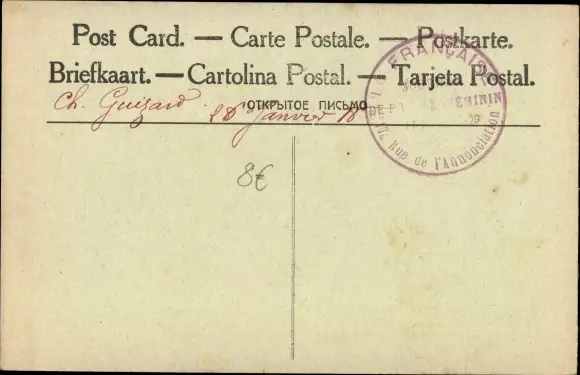 Post Card. — Carte Postale. — Postkarte.
Briefkaart. — Cartolina Postal. — Tarjeta Postal.
ОТКРЫТОЕ ПИСЬМО
Ch. Guizard 28 Janvier 18
FRANÇAIS
FÉMININ
10, Rue de l'Annonciation
8€